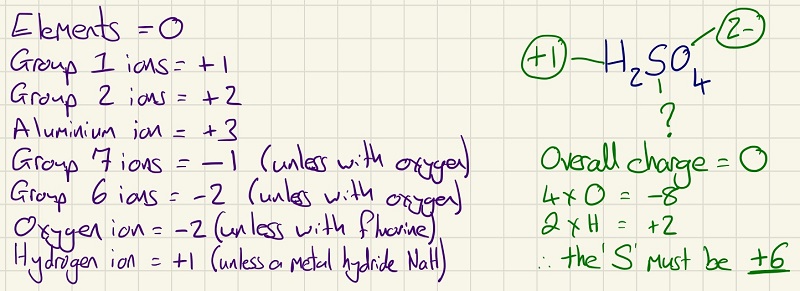 Elements = 0
Group 1 ions = +1
Group 2 ions = +2
Aluminium ion = +3
Group 7 ions = -1 (unless with oxygen)
Group 6 ions = -2 (unless with oxygen)
Oxygen ion = -2 (unless with fluorine)
Hydrogen ion = +1 (unless a metal hydride NaH)
2-
+1 H₂SO₄
?
Overall charge = 0
4 x O = -8
2 x H = +2
∴ the 'S' must be +6